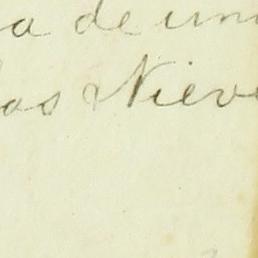 a de un
las Nieve